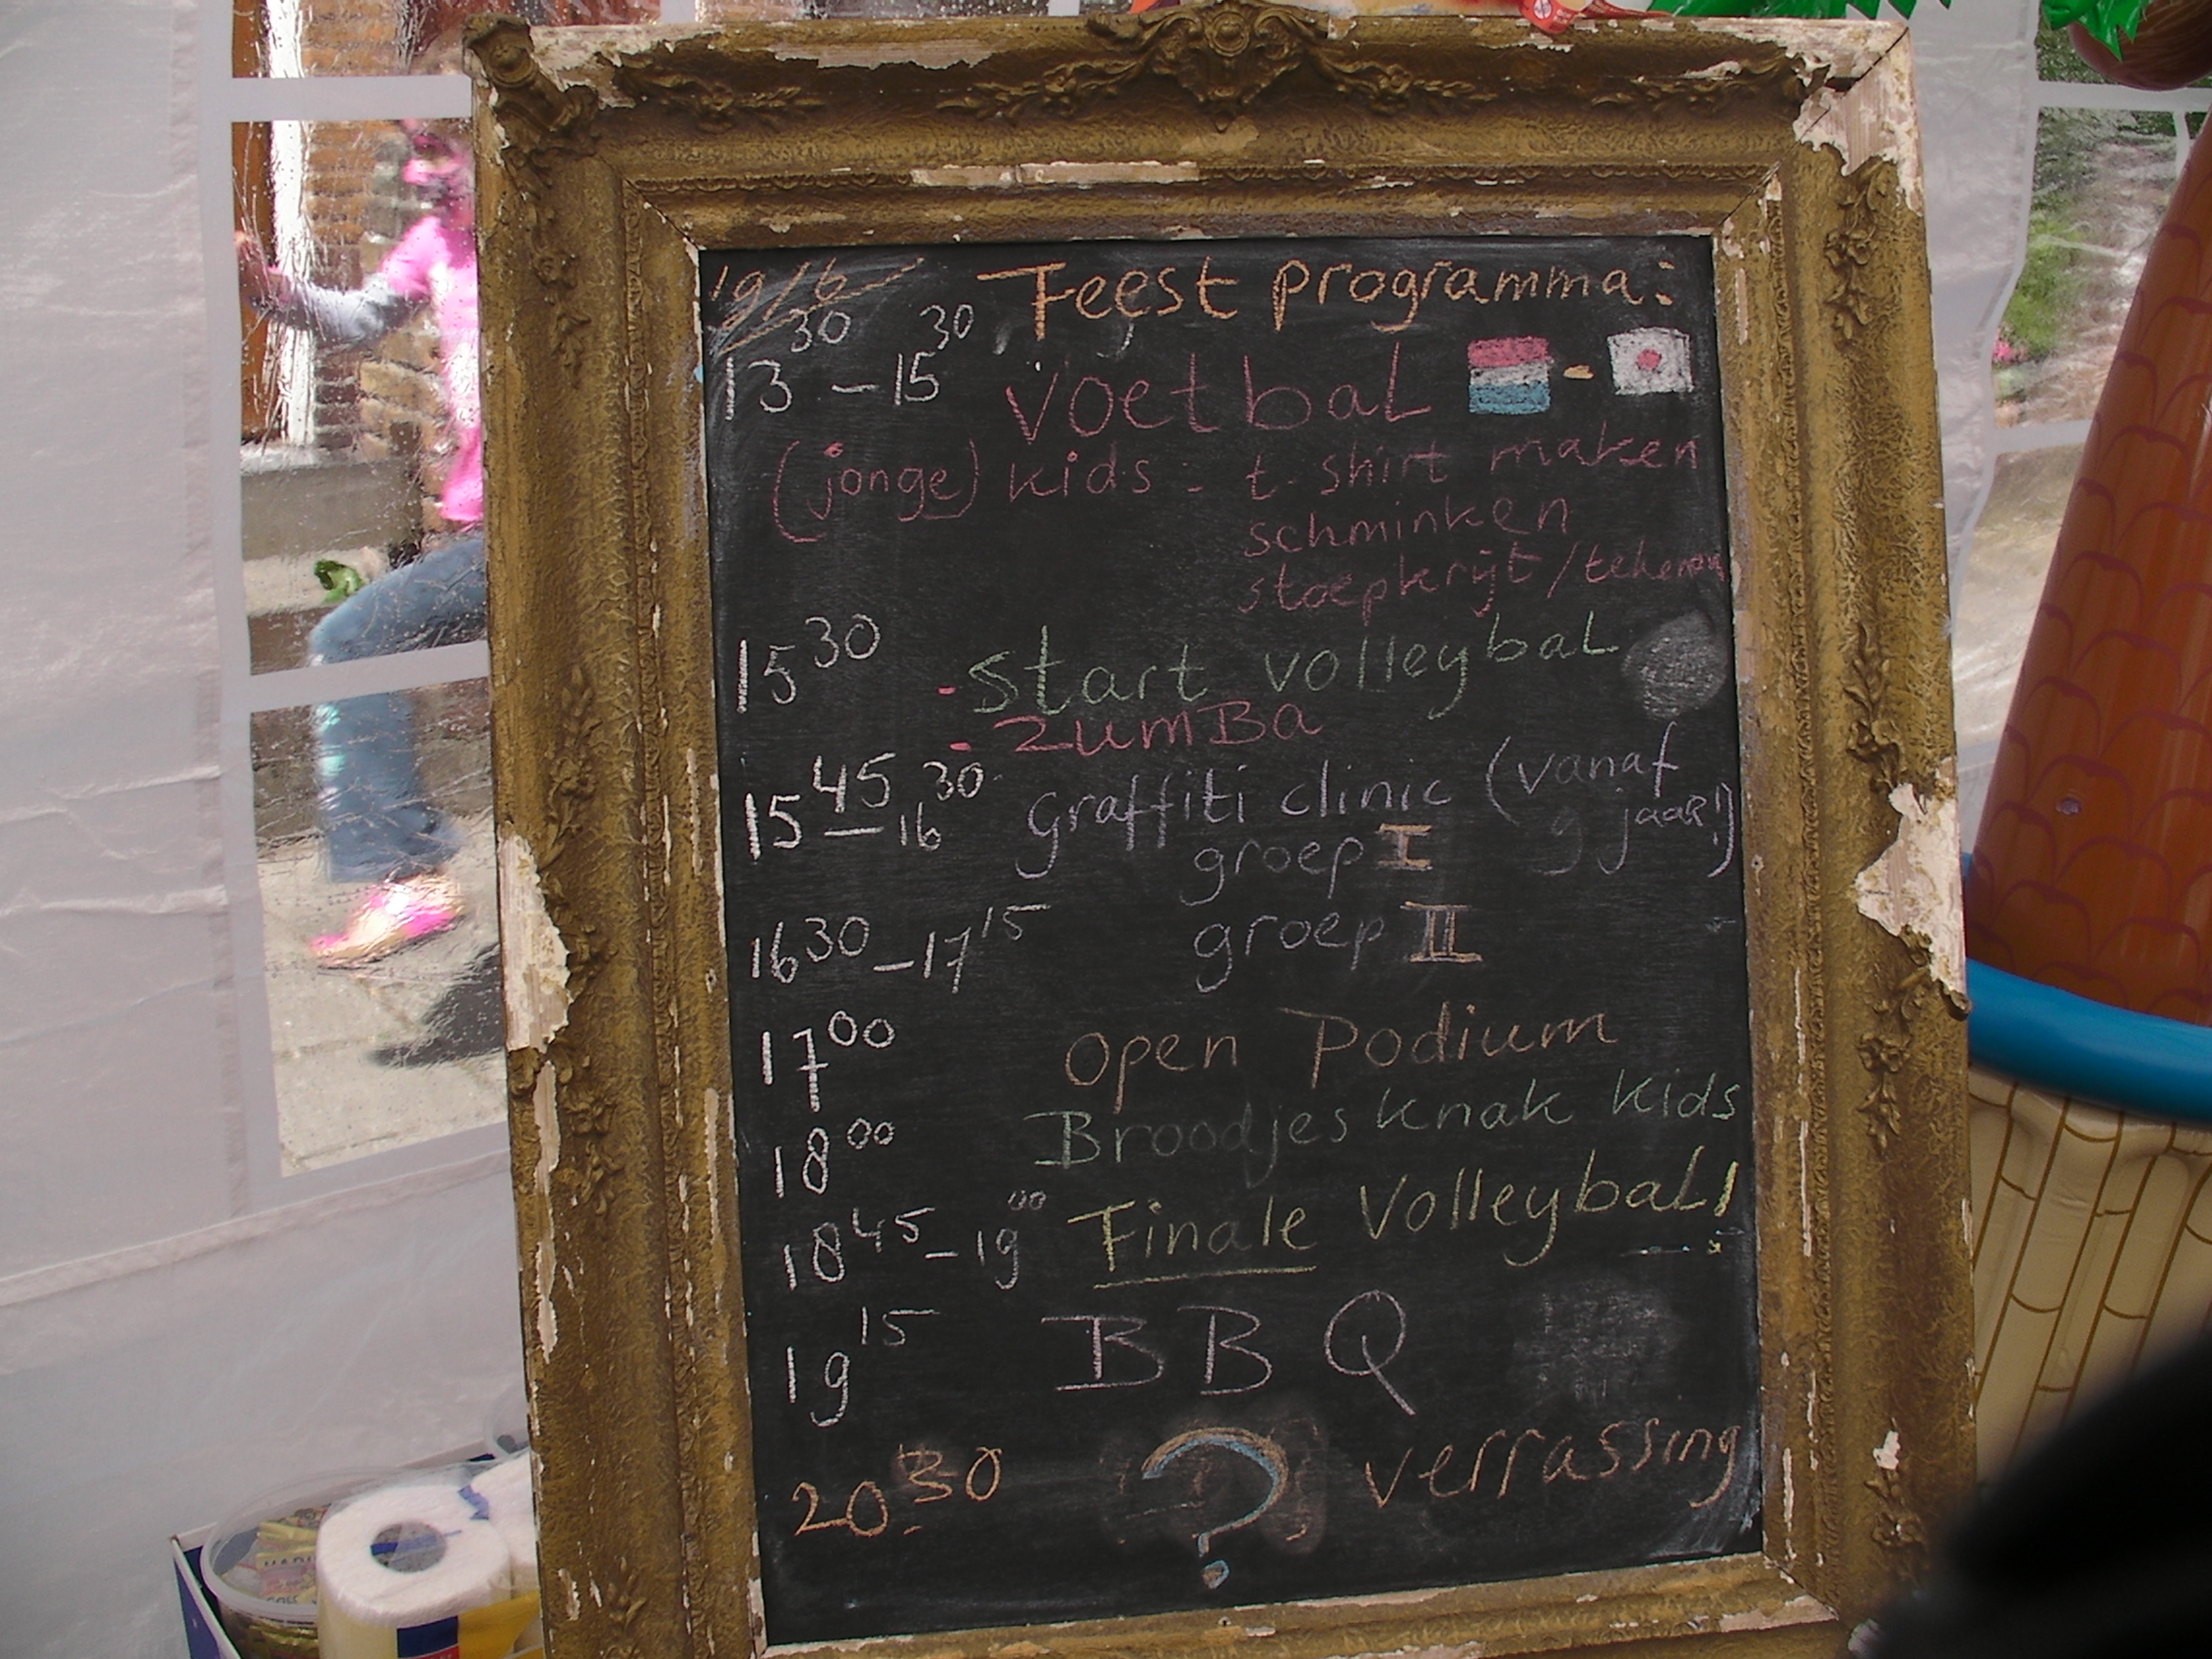 19/6 Feest programma:
13³⁰ – 15³⁰ voetbal -
(jonge) kids - t shirt maken
schminken
stoepkrijt/tekenen
15³⁰ - Start volleybal
- ZumBa
15⁴⁵ – 16³⁰ Graffiti clinic (vanaf
9 jaar!)
groep I
16³⁰ – 17¹⁵ groep II
17⁰⁰ Open Podium
18⁰⁰ Broodjes knak kids
18⁴⁵ – 19⁰⁰ Finale Volleybal!
19¹⁵ BBQ
20³⁰ ? verrassing